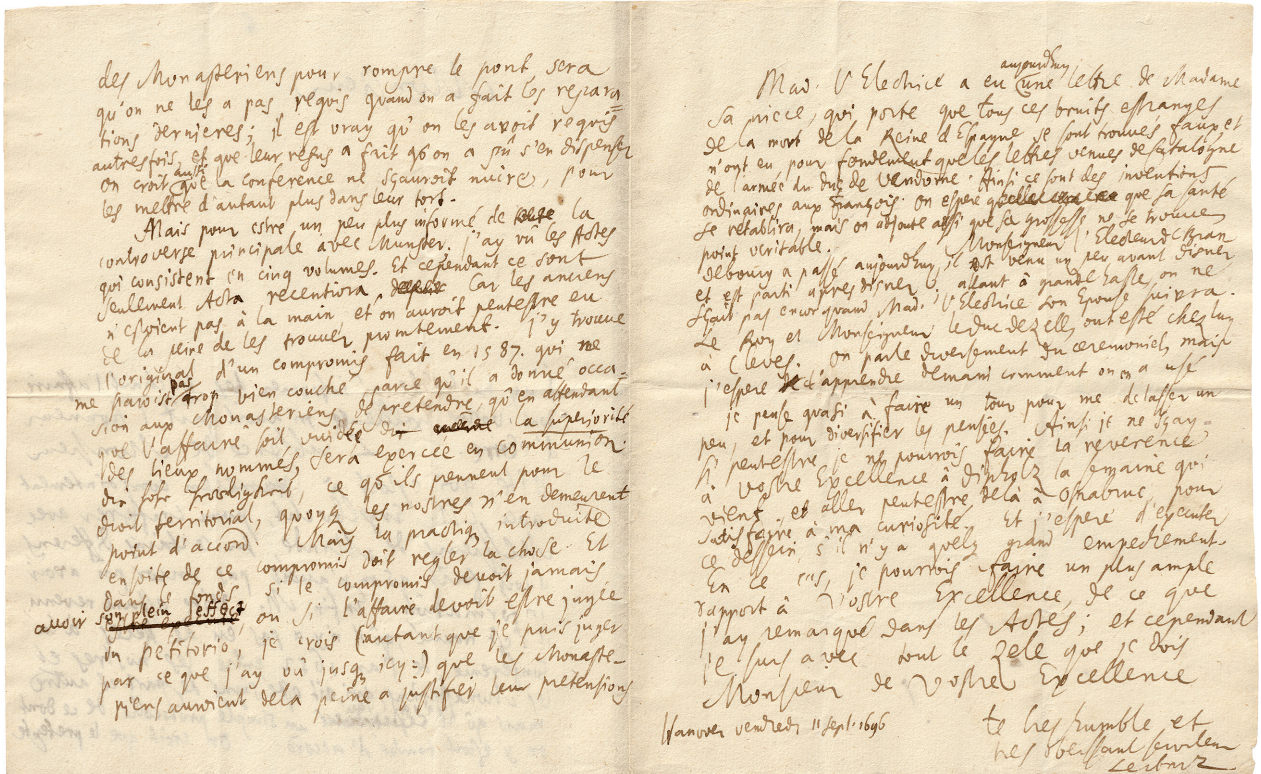 des Monasteriens pour rompre le pont, sera
qu'on ne les a pas requis quand on a fait les repara=
tions dernieres; il est vray qu'on les avoit requis
autresfois, et que leur refus a fait qu'on a pû s'en dispenser
on croit aussi que la conference ne sçauroit nuire, pour
les mettre d'autant plus dans leur tort.
Mais pour estre un peu plus informé de la
controverse principale avec Munster. j'ay vû les Actes
qui consistent en cinq volumes. Et cependant ce sont
seulement Acta recentiora, car les anciens
n'estoient pas à la main et on auroit peutestre eu
de la peine de les trouver promtement. J'y trouve
l'original d'un compromis fait en 1587. qui ne
me paroist pas trop bien couché, parce qu'il a donné occa-
sion aux Monasteriens de pretendre, qu'en attendant
que l'affaire soit vuidée la superiorité
des lieux nommés, sera exercée en communion.
die fote frowligkeit, ce qu'ils prennent pour le
droit territorial, quoyque les nostres n'en demeurent
point d'accord. Mais la practique introduite
ensuite de ce compromis doit regler la chose. Et
dans le fonds si le compromis devoit jamais
avoir son plein effect, ou si l'affaire devoit estre jugée
in petitorio, je crois (autant que je puis juger
par ce que j'ay vû jusqu'icy:) que les Monaste-
riens auroient de la peine a justifier leur pretensions
Mad. l'Electrice a eu aujourdhuy une lettre de Madame
sa niece, qui porte que tous ces bruits estranges
de la mort de la Reine d'Espagne se sont trouvés faux et
n'ont eu pour fondement que les lettres venues de Catalogne
de l'armée du duc de Vendome. Ainsi ce sont des inventions
ordinaires aux françois. on espere que sa santé
se retablira, mais on adjoute aussi que sa grossesse ne se trouve
point veritable. Monseigneur l'Electeur de Bran
debourg a passé aujourdhuy, il est venu un peu avant disner
et est parti apres disner, allant à grande haste, on ne
sçait pas encor quand Mad. l'Electrice son Epouse suivra.
Le Roy et Monseigneur le duc de Zelle ont esté chez luy
à Cleves. on parle diversement du ceremoniel, mais
j'espere d'apprendre demain comment on en a usé
je pense quasi à faire un tour pour me delasser un
peu, et pour diversifier les pensées. Ainsi je ne sçay
si peutestre je ne pourrois faire la reverence
à Vostre Excellence à Dipholz la semaine qui
vient, et aller peutestre delà à Osnabruc, pour
satisfaire à ma curiosité. Et j'espere d'executer
ce dessein, s'il n'y a quelque grand empechement.
En ce cas, je pourrois faire un plus ample
rapport à Vostre Excellence, de ce que
j'ay remarqué dans les Actes; et cependant
je suis avec tout le zele que je dois
Monsieur de Vostre Excellence
Hanover vendredi 11 Sept. 1696
le tres humble et
tres obeissant serviteur
Leibniz